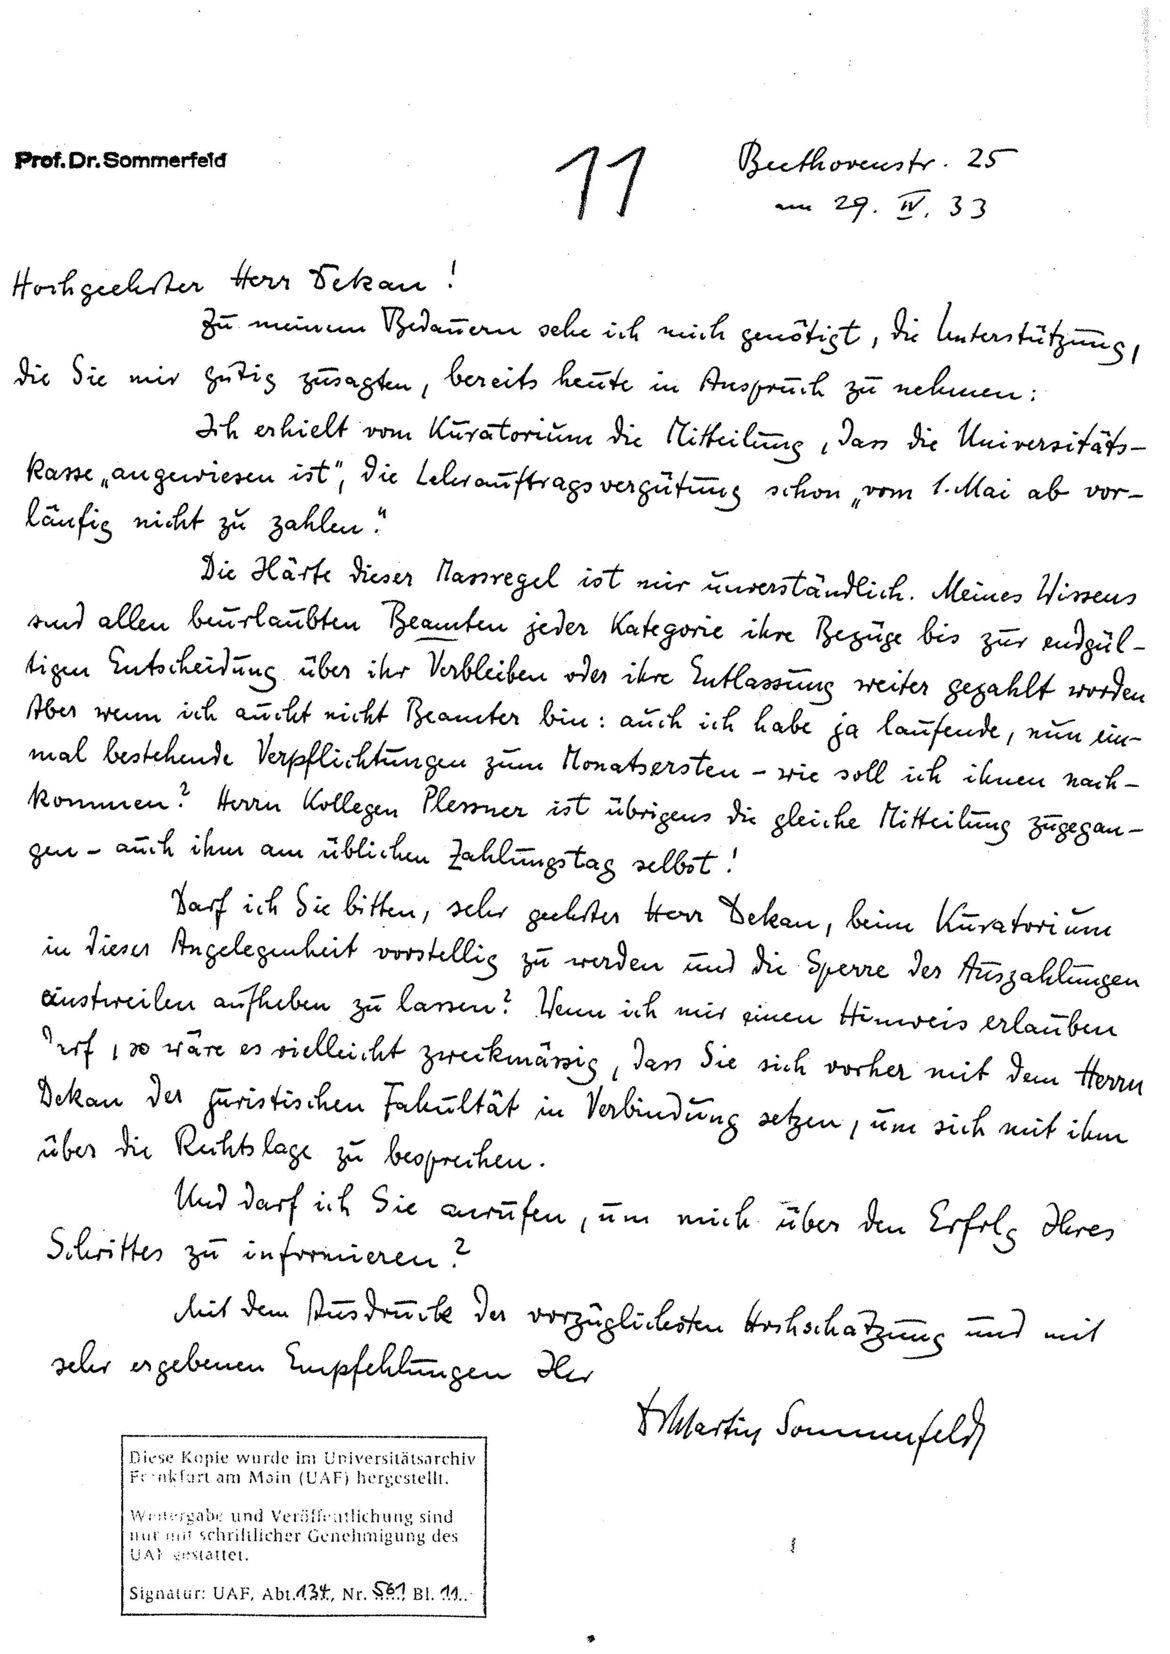 Prof. Dr. Sommerfeld
11
Beethovenstr. 25
am 29. IV. 33
Hochgeehrter Herr Dekan!
Zu meinem Bedauern sehe ich mich genötigt, die Unterstützung,
die Sie mir gütig zusagten, bereits heute in Anspruch zu nehmen:
Ich erhielt vom Kuratorium die Mitteilung, dass die Universitäts-
kasse „angewiesen ist“, die Lehrauftragsvergütung schon „vom 1. Mai ab vor-
läufig nicht zu zahlen.“
Die Härte dieser Massregel ist mir unverständlich. Meines Wissens
sind allen beurlaubten Beamten jeder Kategorie ihre Bezüge bis zur endgül-
tigen Entscheidung über ihr Verbleiben oder ihre Entlassung weiter gezahlt worden
Aber wenn ich auch nicht Beamter bin: auch ich habe ja laufende, nun ein-
mal bestehende Verpflichtungen zum Monatsersten – wie soll ich ihnen nach-
kommen? Herrn Kollegen Plessner ist übrigens die gleiche Mitteilung zugegan-
gen – auch ihm am üblichen Zahlungstag selbst!
Darf ich Sie bitten, sehr geehrter Herr Dekan, beim Kuratorium
in dieser Angelegenheit vorstellig zu werden und die Sperre der Auszahlungen
einstweilen aufheben zu lassen? Wenn ich mir einen Hinweis erlauben
darf, so wäre es vielleicht zweckmässig, dass Sie sich vorher mit dem Herrn
Dekan der juristischen Fakultät in Verbindung setzen, um sich mit ihm
über die Rechtslage zu besprechen.
Und darf ich Sie anrufen, um mich über den Erfolg Ihres
Schrittes zu informieren?
Mit dem Ausdruck der vorzüglichsten Hochschätzung und mit
sehr ergebenen Empfehlungen Ihr
Martin Sommerfeld
Diese Kopie wurde im Universitätsarchiv
Frankfurt am Main (UAF) hergestellt.
Weitergabe und Veröffentlichung sind
nur mit schriftlicher Genehmigung des
UAF gestattet.
Signatur: UAF, Abt. 134, Nr. 561, Bl. 11